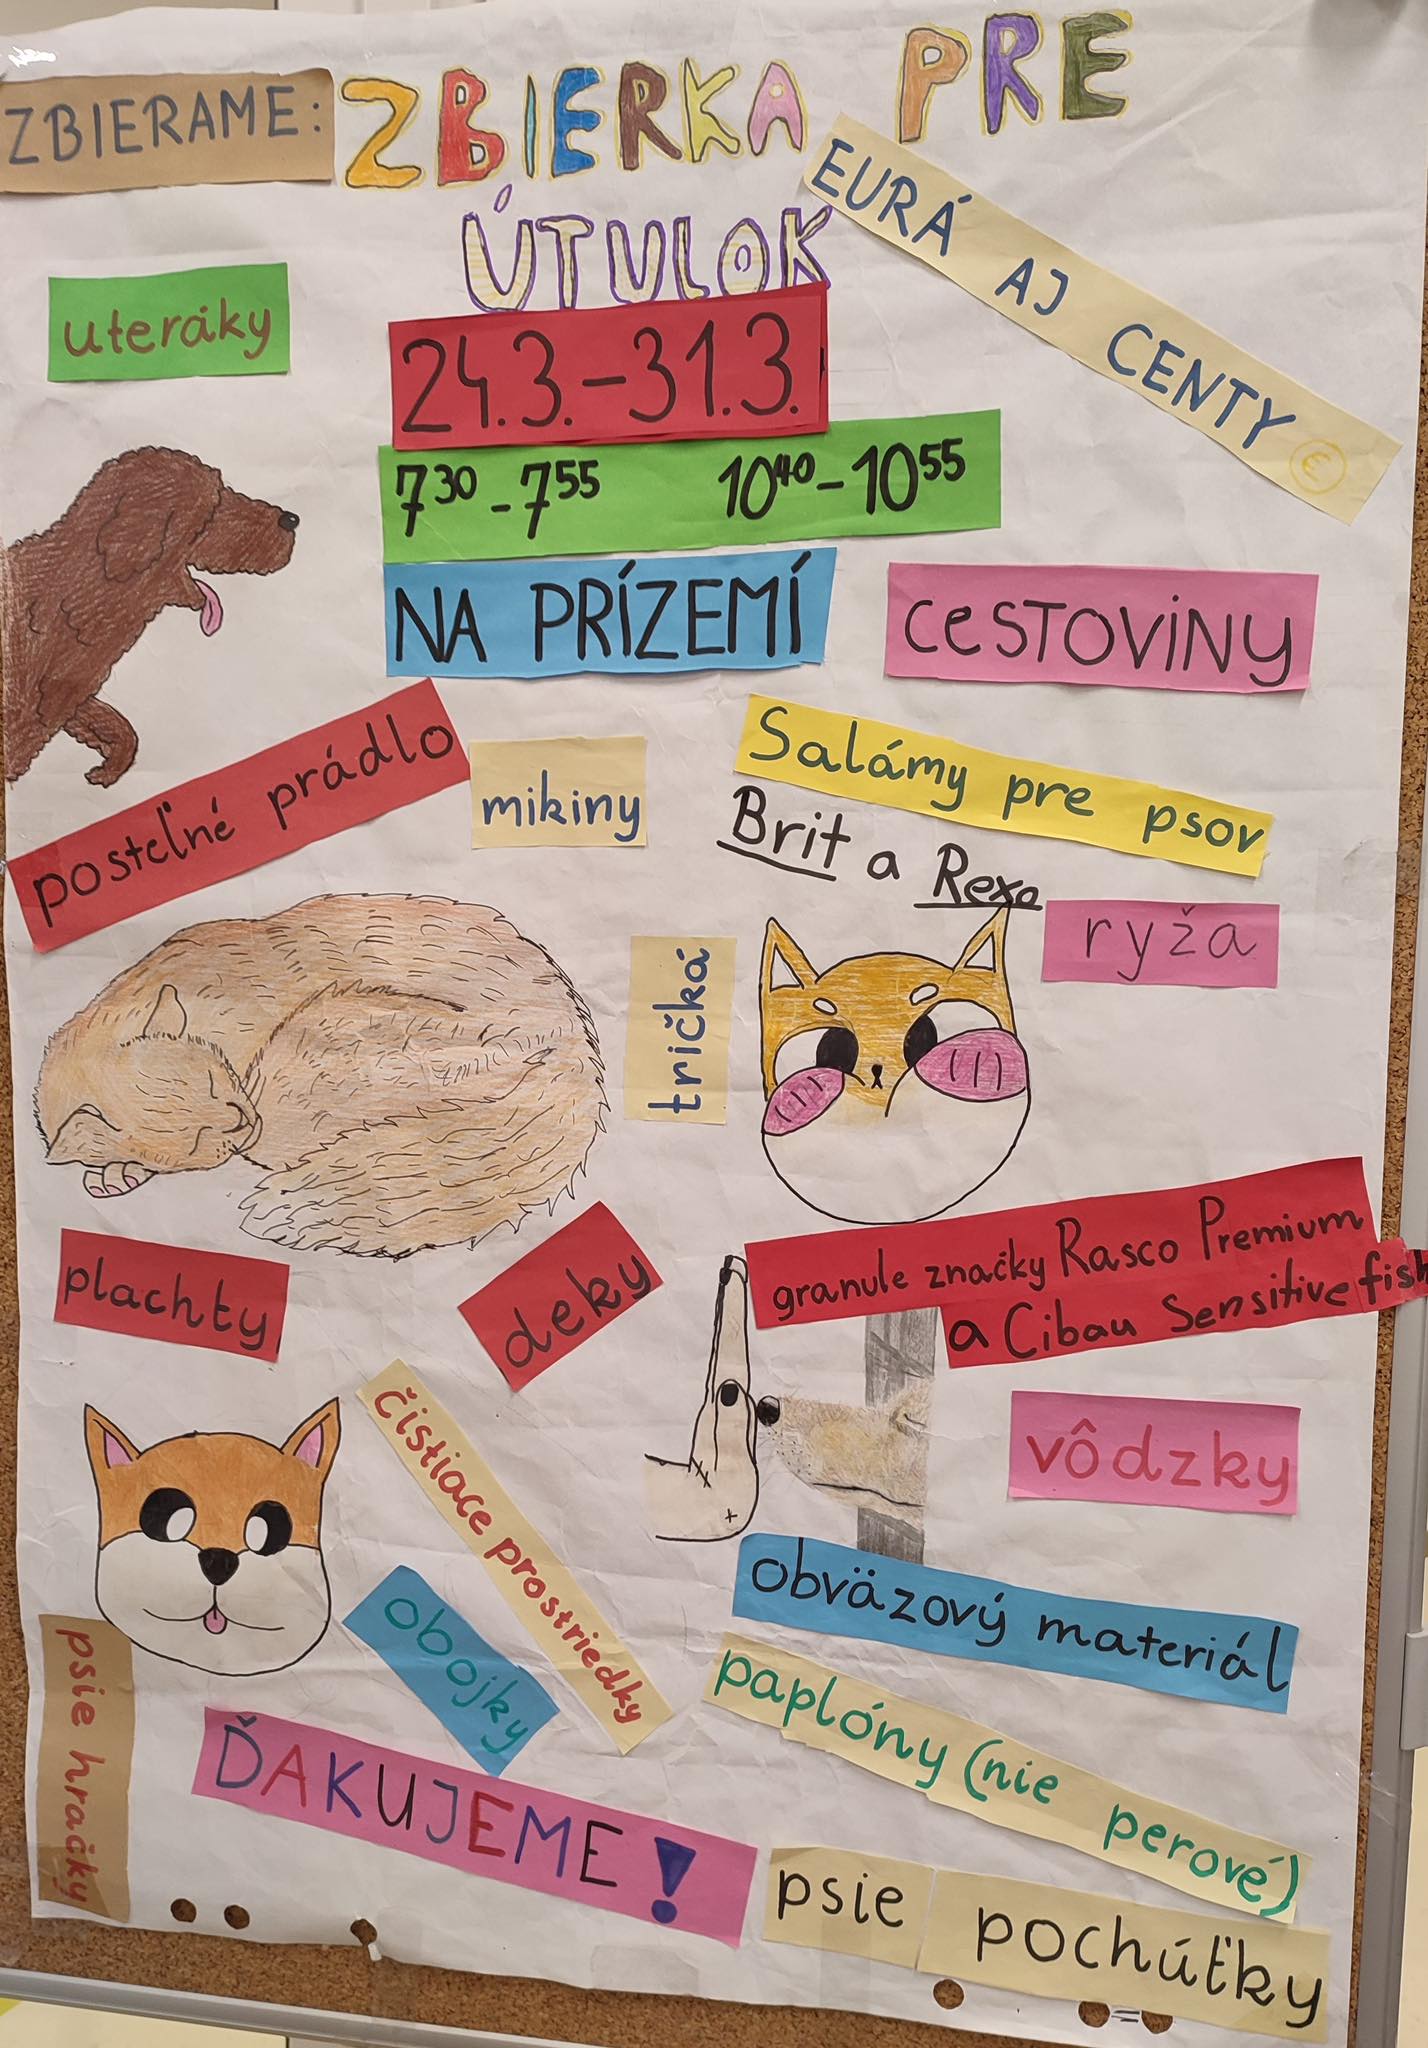 ZBIERAME:
ZBIERKA PRE
ÚTULOK
EURÁ AJ CENTY €
uteráky
24.3.-31.3.
7³⁰-7⁵⁵ 10⁴⁰-10⁵⁵
NA PRÍZEMÍ
CESTOVINY
posteľné prádlo
mikiny
Salámy pre psov
Brit a Rexo
ryža
tričká
plachty
deky
granule značky Rasco Premium
a Cibau Sensitive fish
čistiace prostriedky
vôdzky
obojky
obväzový materiál
psie hračky
paplóny (nie perové)
ĎAKUJEME!
psie pochúťky